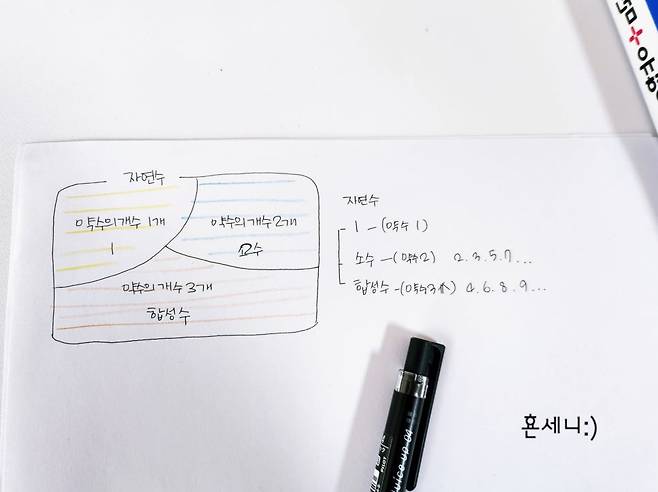 자연수
약수의개수 1개
1
약수의개수 2개
소수
약수의 개수 3개
합성수
자연수
1 - (약수 1)
소수 - (약수2) 2. 3. 5. 7. ...
합성수 - (약수3↑) 4. 6. 8. 9. ...
Juice up 04
PILOT
혼세니:)